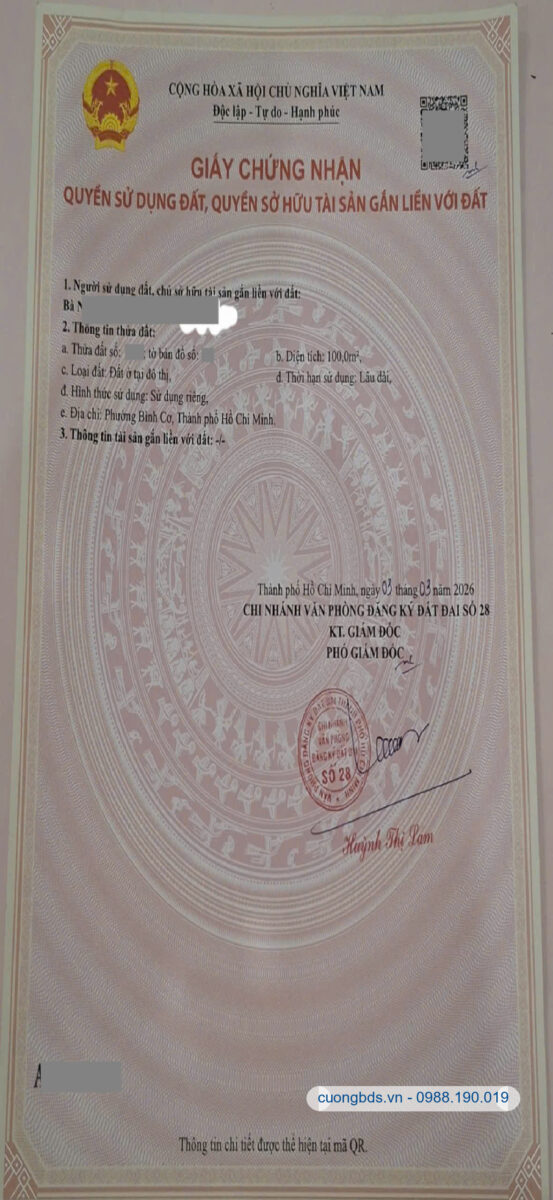 CỘNG HÒA XÃ HỘI CHỦ NGHĨA VIỆT NAM
Độc lập - Tự do - Hạnh phúc
GIẤY CHỨNG NHẬN
QUYỀN SỬ DỤNG ĐẤT, QUYỀN SỞ HỮU TÀI SẢN GẮN LIỀN VỚI ĐẤT
1. Người sử dụng đất, chủ sở hữu tài sản gắn liền với đất:
Bà N
2. Thông tin thửa đất:
a. Thửa đất số: ; tờ bản đồ số: b. Diện tích: 100,0m²,
c. Loại đất: Đất ở tại đô thị, d. Thời hạn sử dụng: Lâu dài,
đ. Hình thức sử dụng: Sử dụng riêng,
e. Địa chỉ: Phường Bình Cơ, Thành phố Hồ Chí Minh.
3. Thông tin tài sản gắn liền với đất: -/-
Thành phố Hồ Chí Minh, ngày 03 tháng 03 năm 2026
CHI NHÁNH VĂN PHÒNG ĐĂNG KÝ ĐẤT ĐAI SỐ 28
KT. GIÁM ĐỐC
PHÓ GIÁM ĐỐC
VĂN PHÒNG ĐĂNG KÝ ĐẤT ĐAI THÀNH PHỐ HỒ CHÍ MINH
CHI NHÁNH
VĂN PHÒNG
ĐĂNG KÝ ĐẤT ĐAI
SỐ 28
Huỳnh Thị Lam
A
cuongbds.vn - 0988.190.019
Thông tin chi tiết được thể hiện tại mã QR.